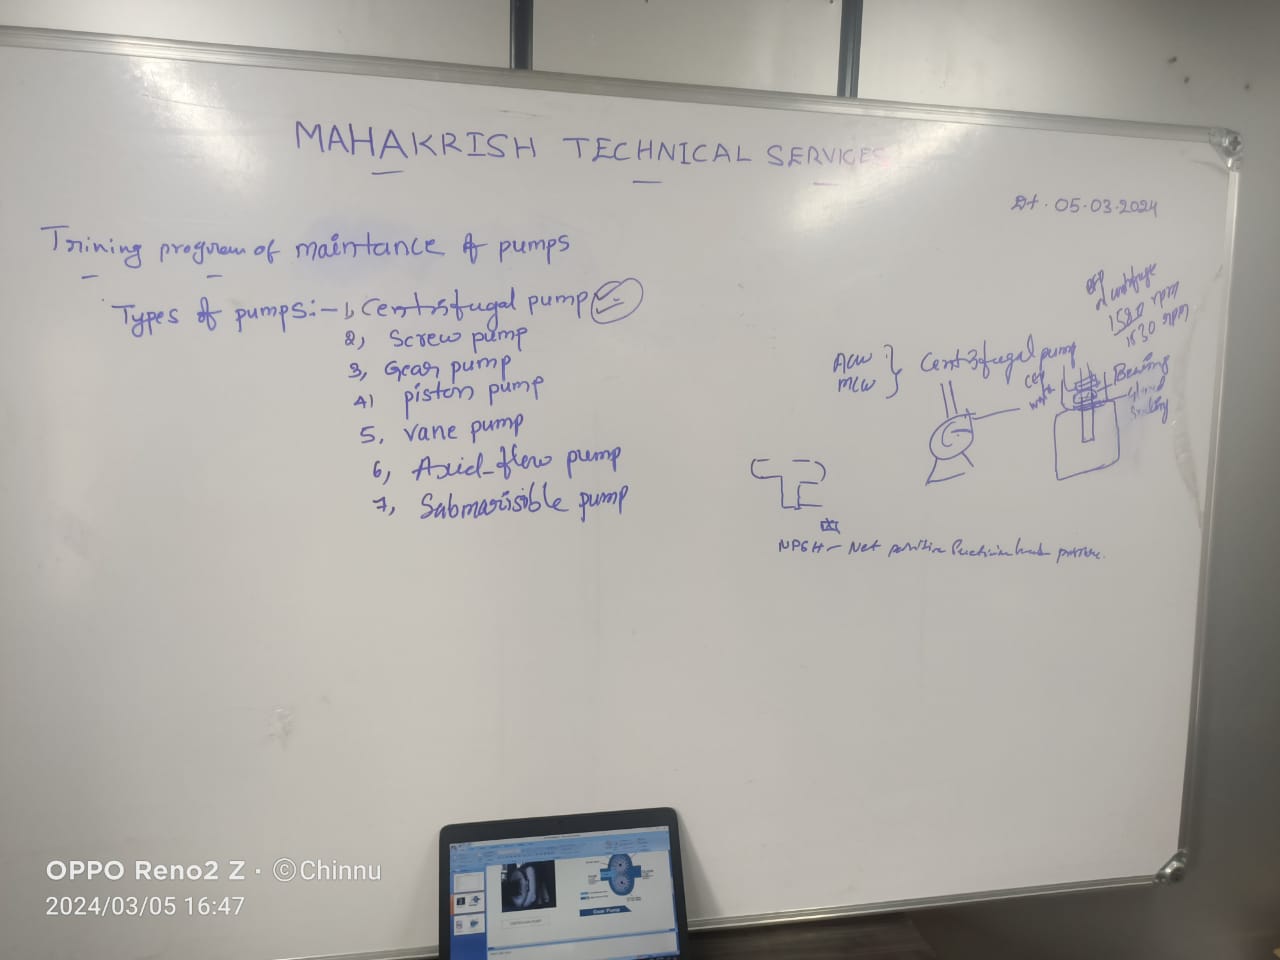 MAHAKRISH TECHNICAL SERVICES
Dt. 05.03.2024
Trining program of maintance of pumps
Types of pumps:- 1, Centrifugal pump
2, Screw pump
3, Gear pump
4) piston pump
5, Vane pump
6, Axid-flow pump
7, Submarisible pump
BFP
1580 rpm
1530 rpm
ACW
MCW
Centrifugal pump
CEP
Bearing
Gland
NPSH - Net positive
OPPO Reno2 Z · ©Chinnu
2024/03/05 16:47
Gear Pump